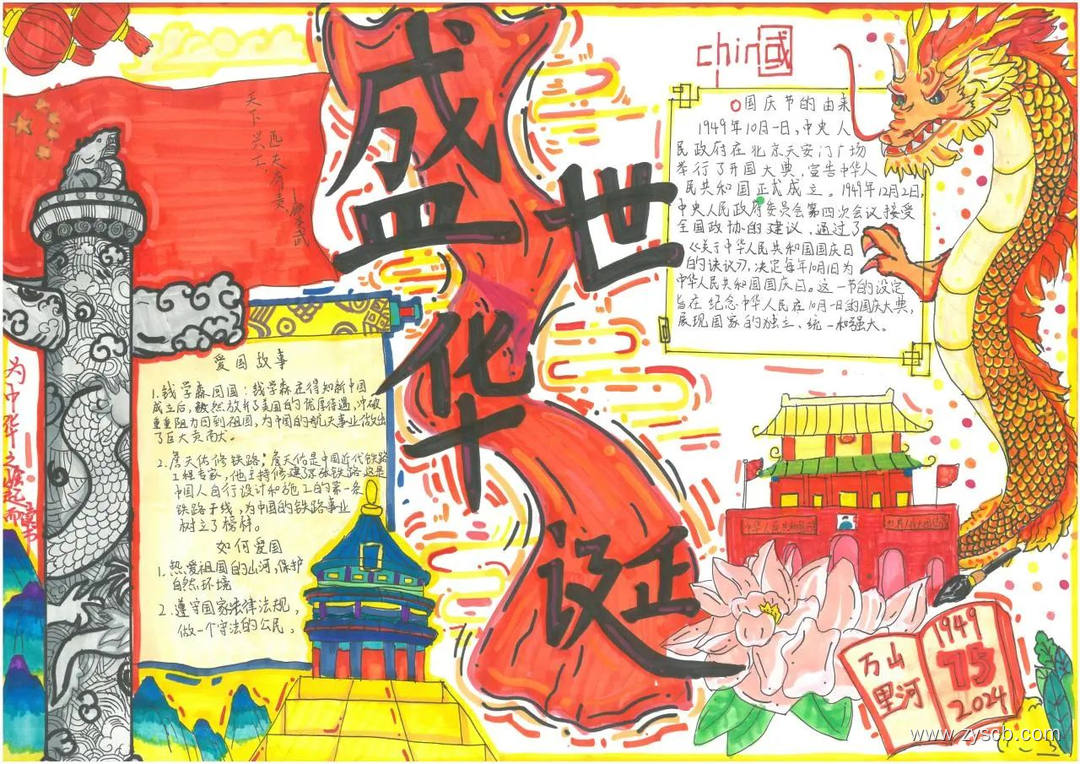 盛世华诞
天下兴亡,
匹夫有责
顾炎武
chin國
国庆节的由来
1949年10月一日,中央人
民政府在北京天安门广场
举行了开国大典,宣告中华人
民共和国正式成立。1949年12月2日,
中央人民政府委员会第四次会议接受
全国政协的建议,通过了
《关于中华人民共和国国庆日
的决议》,决定每年10月1日为
中华人民共和国国庆日。这一节的设定
旨在纪念中华人民在10月一日的国庆大典,
展现国家的独立、统一和强大。
为中华之崛起而读书
爱国故事
1.钱学森回国:钱学森在得知新中国
成立后,毅然放弃了美国的优厚待遇,冲破
重重阻力回到祖国,为中国的航天事业做出
了巨大贡献。
2.詹天佑修铁路:詹天佑是中国近代铁路
工程专家,他主持修建了京张铁路这是
中国人自行设计和施工的第一条
铁路干线,为中国的铁路事业
树立了榜样。
如何爱国
1.热爱祖国的山河,保护
自然环境
2.遵守国家法律法规,
做一个守法的公民。
万里
山河
1949
75
2024
www.zyscb.com